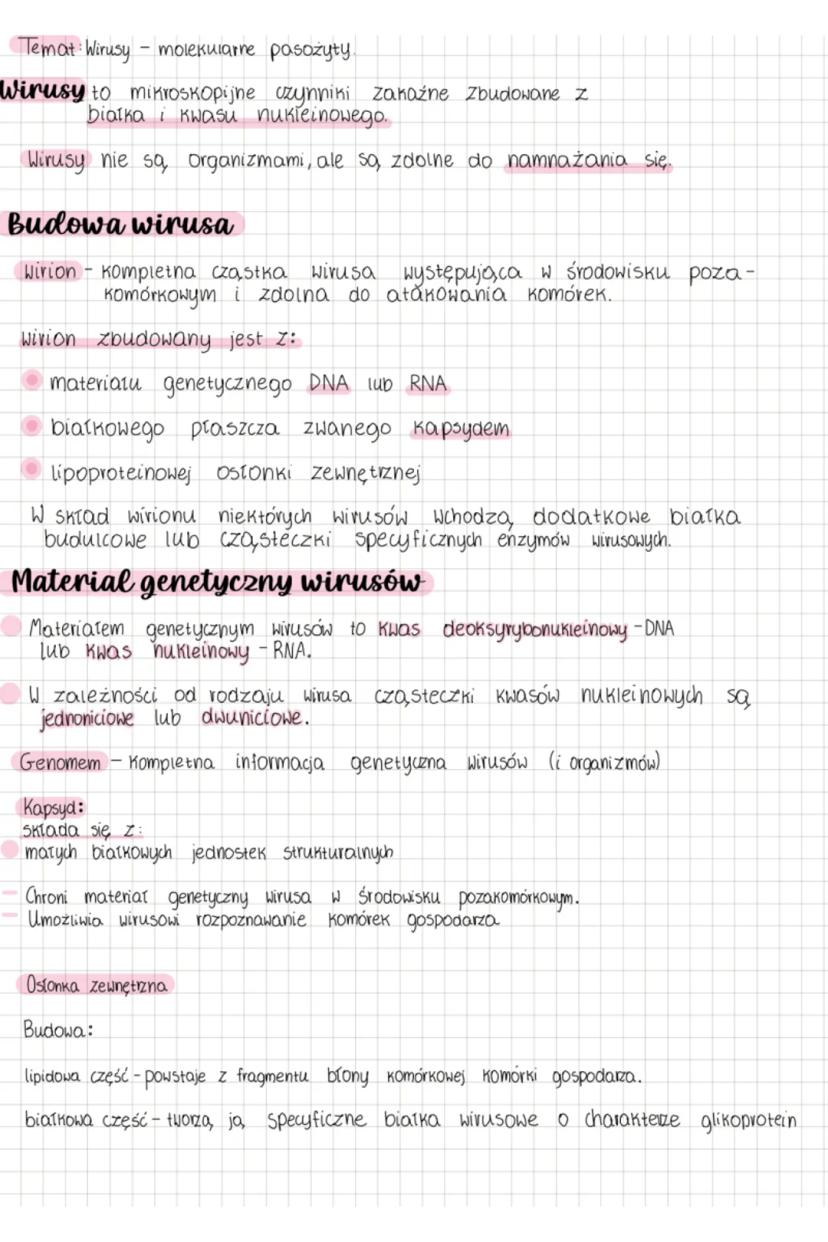 Temat: Wirusy - molekularne pasożyty.
Wirusy to mikroskopijne czynniki zakaźne zbudowane z
białka i kwasu nukleinowego.
Wirusy nie są organizmami, ale są zdolne do namnażania się.
Budowa wirusa
Wirion - kompletna cząstka wirusa występująca w środowisku poza-
komórkowym i zdolna do atakowania komórek.
Wirion zbudowany jest z:
materiału genetycznego DNA lub RNA
białkowego płaszcza zwanego kapsydem
lipoproteinowej osłonki zewnętrznej
W skład wirionu niektórych wirusów wchodzą dodatkowe białka
budulcowe lub cząsteczki specyficznych enzymów wirusowych.
Materiał genetyczny wirusów
Materiałem genetycznym wirusów to kwas deoksyrybonukleinowy - DNA
lub kwas nukleinowy - RNA.
W zależności od rodzaju wirusa cząsteczki kwasów nukleinowych są
jednoniciowe lub dwuniciowe.
Genomem - kompletna informacja genetyczna wirusów (i organizmów)
Kapsyd:
składa się z:
małych białkowych jednostek strukturalnych
- Chroni materiał genetyczny wirusa w środowisku pozakomórkowym.
- Umożliwia wirusowi rozpoznawanie komórek gospodarza
Osłonka zewnętrzna
Budowa:
lipidowa część - powstaje z fragmentu błony komórkowej komórki gospodarza.
białkowa część - tworzą ją specyficzne białka wirusowe o charakterze glikoprotein